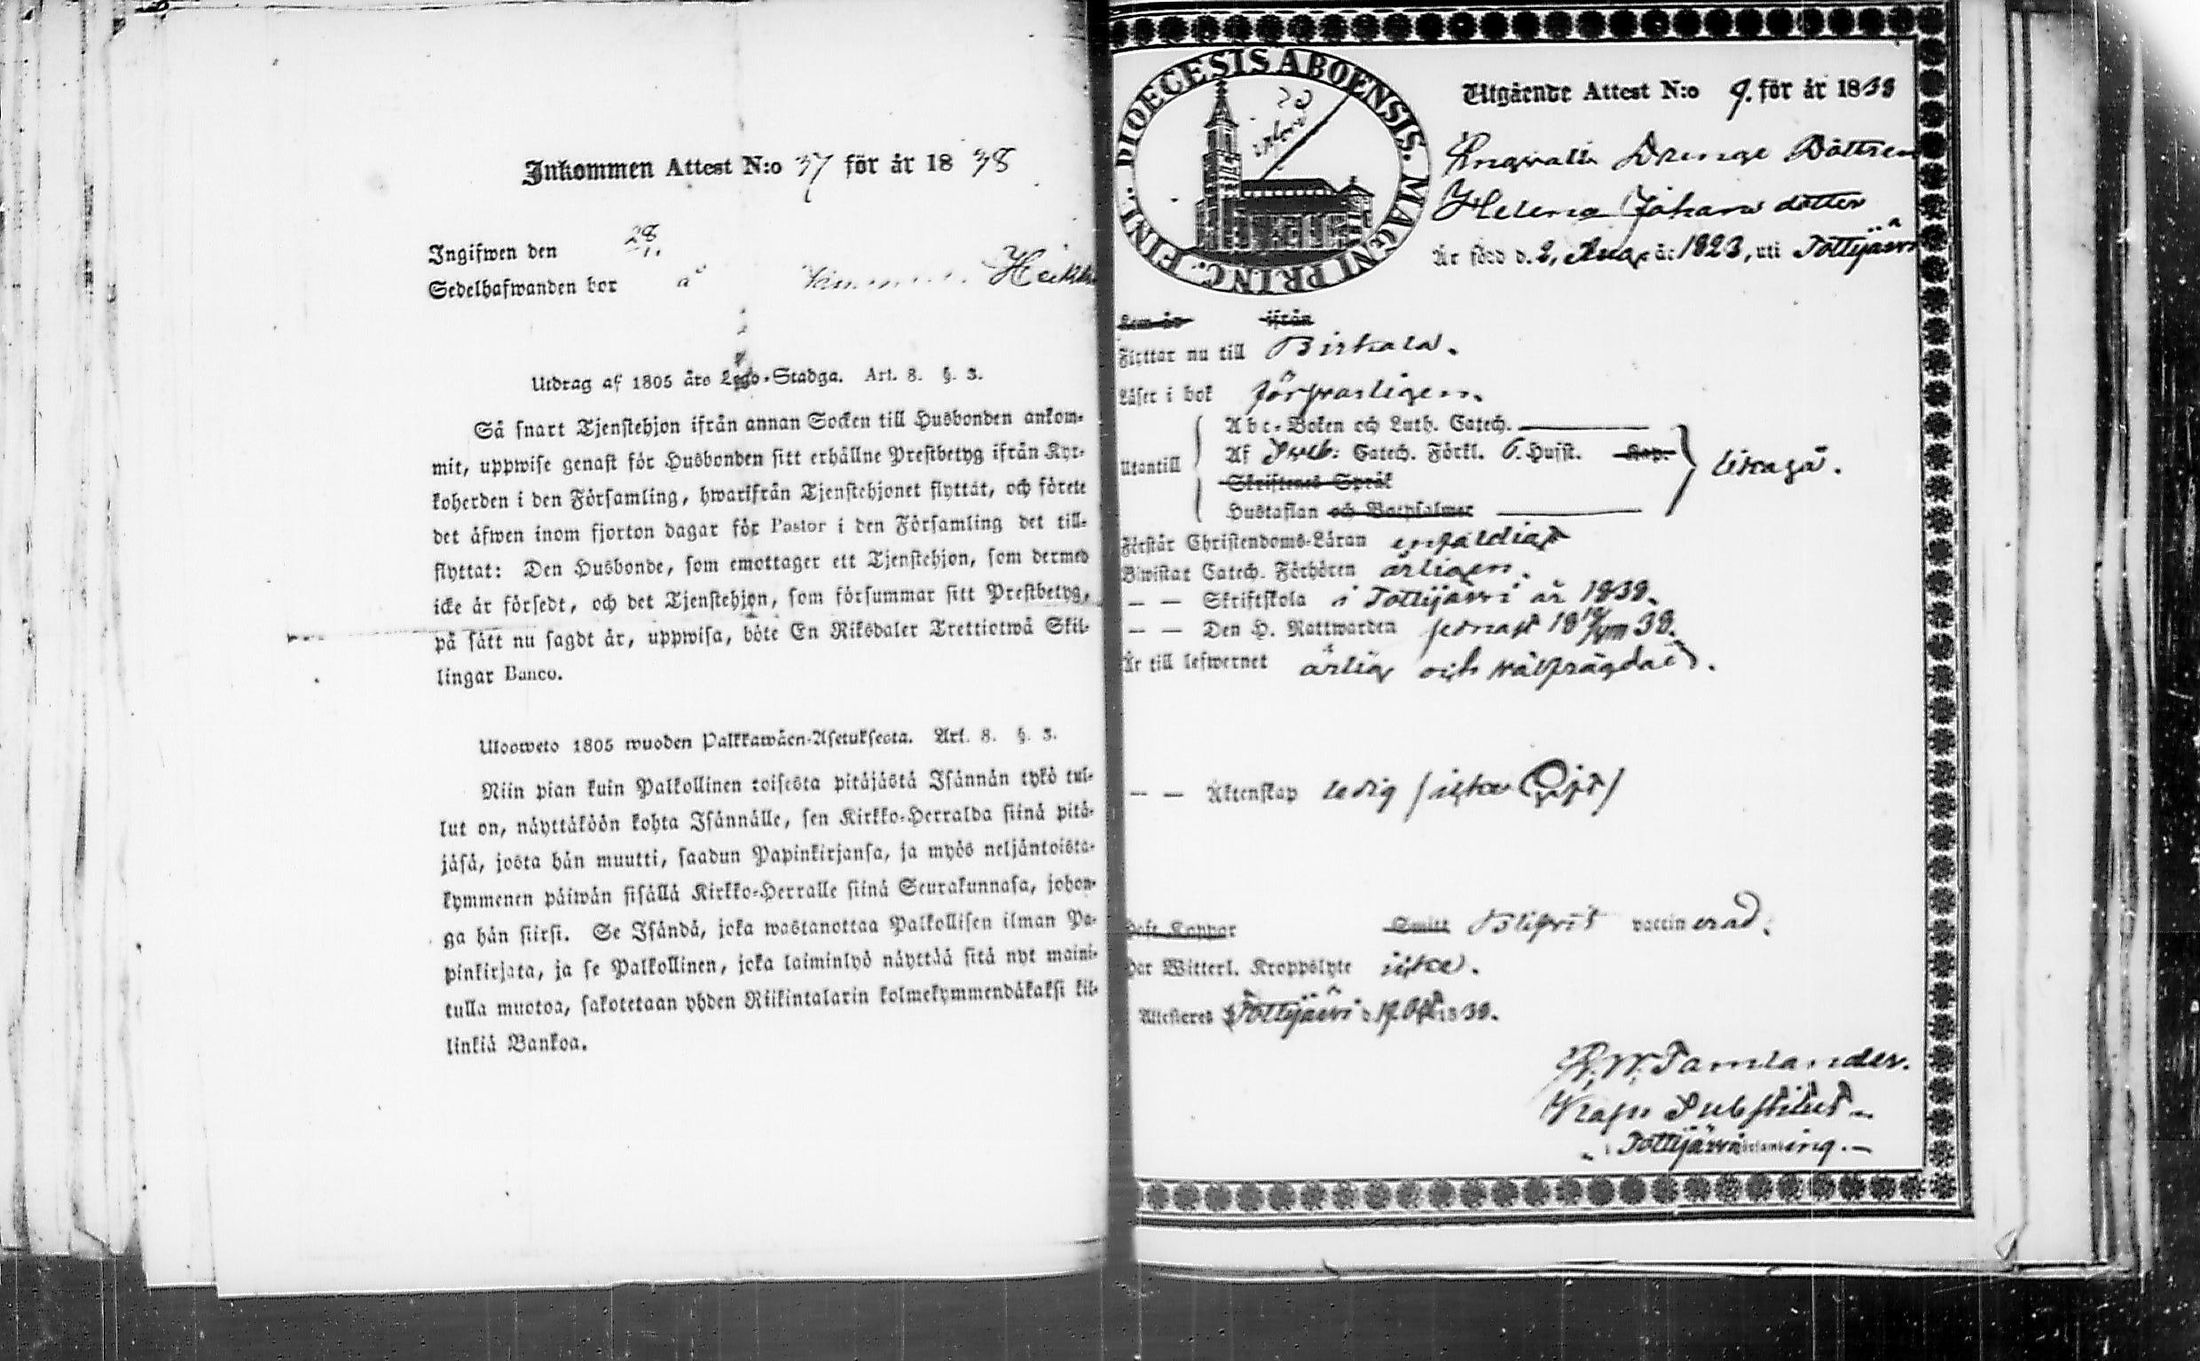 Inkommen Attest N:o 37 för år 1838
Ingifwen den 28
Sedelhafwanden bor å Heikki
Utdrag af 1805 års Lego-Stadga. Art. 8. §. 3.
Så snart Tjenstehjon ifrån annan Socken till Husbonden ankom-
mit, uppwise genast för Husbonden sitt erhållne Prestbetyg ifrån Kyr-
koherden i den Församling, hwarifrån Tjenstehjonet flyttat, och förete
det äfwen inom fjorton dagar för Pastor i den Församling det till-
flyttat: Den Husbonde, som emottager ett Tjenstehjon, som dermed
icke är försedt, och det Tjenstehjon, som försummar sitt Prestbetyg,
på sätt nu sagdt är, uppwisa, böte En Riksdaler Trettiotwå Skil-
lingar Banco.
Ulosweto 1805 wuoden Palkkawäen-Asetuksesta. Art. 8. §. 3.
Niin pian kuin Palkollinen toisesta pitäjästä Isännän tykö tul-
lut on, näyttäköön kohta Isännälle, sen Kirkko-Herralda siinä pitä-
jäsä, josta hän muutti, saadun Papinkirjansa, ja myös neljäntoista-
kymmenen päiwän sisällä Kirkko-Herralle siinä Seurakunnasa, johon-
ga hän siirsi. Se Isändä, joka wastanottaa Palkollisen ilman Pa-
pinkirjata, ja se Palkollinen, joka laiminlyö näyttää sitä nyt maini-
tulla muotoa, sakotetaan yhden Riikintalarin kolmekymmendäkaksi kil-
linkiä Bankoa.
FINL. DIOECESIS ABOENSIS. MAGNI PRINC.
Utgående Attest N:o 9. för år 1838
Drenge Dottren
Helena Johans dotter
Är född d. 2, Aug. år 1823, uti Tottijärvi
Kom år ifrån
Flyttar nu till Birkala.
Läser i bok försvarligen.
Utantill
Abc-Boken och Luth. Catech.
Af Sveb: Catech. Förkl. 6. Hufst. Kap.
Skriftenes Språk
Hustaflan och Botpsalmer
likaså.
Förstår Christendoms-Läran enfaldigt
Biwistat Catech. Förhören årligen.
— — Skriftskola i Tottijärvi år 1838.
— — Den H. Nattwarden sednast 38.
Är till lefwernet ärlig och välfrägdad.
— — Äktenskap ledig (icke Gift)
Haft Koppor Smitt Blifvit vaccinerad.
Har Witterl. Kroppslyte icke.
Attesteres Tottijärvi d. 17. Oct. 1838.
Tamlander.
Kapn Substitut
i Tottijärvi Församling.